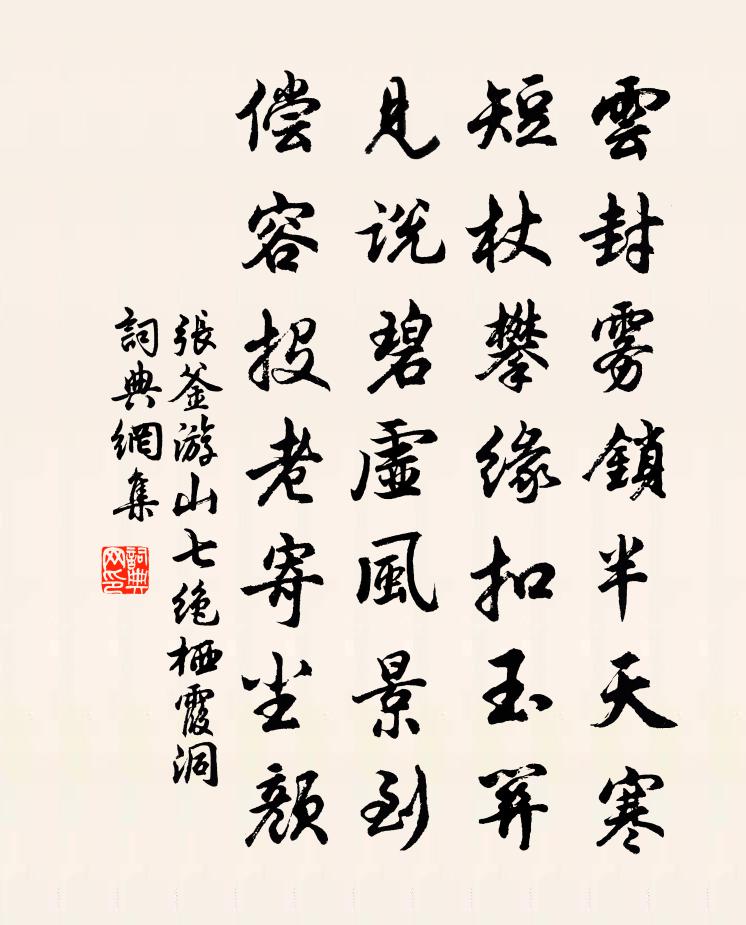 雲封雾鎖半天寒
短杖攀缘扣玉関
见说碧虛風景到
偿容投老寄尘顏
張釜游山七绝栖霞洞
詞典網集
詞典网印